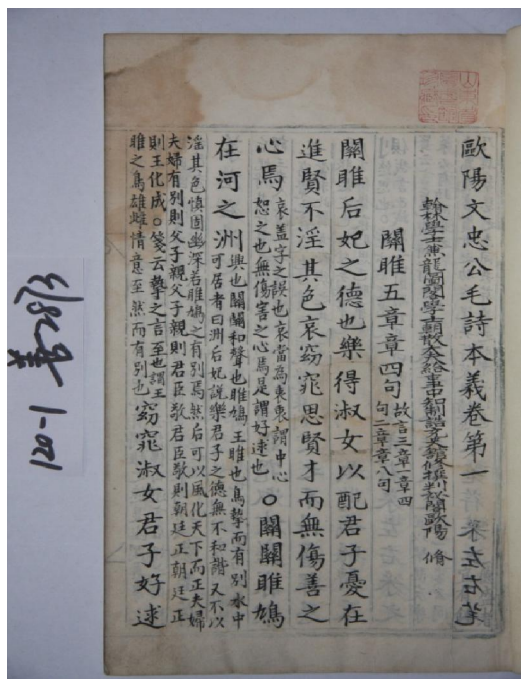 歐陽文忠公毛詩本義卷第一
翰林學士兼龍圖閣學士朝散大夫給事中知制誥充史館修撰判秘閣歐陽 脩
關雎五章章四句 故言三章一章四
句二章章八句
關雎后妃之德也樂得淑女以配君子憂在
進賢不淫其色哀窈窕思賢才而無傷善之
心焉 哀盖字之誤也哀當為衷衷謂中心
恕之也無傷害之心焉是謂好逑也 〇關關雎鳩
在河之洲 興也關關和聲也雎鳩王雎也鳥摯而有別水中
可居者曰洲后妃說樂君子之德無不和諧又不以
淫其色慎固幽深若雎鳩之有別焉然后可以風化天下而正夫婦
夫婦有別則父子親父子親則君臣敬君臣敬則朝廷正朝廷正
則王化成〇箋云摯之言至也謂王
雎之鳥雄雌情意至然而有別也 窈窕淑女君子好逑
善28/3
120-1